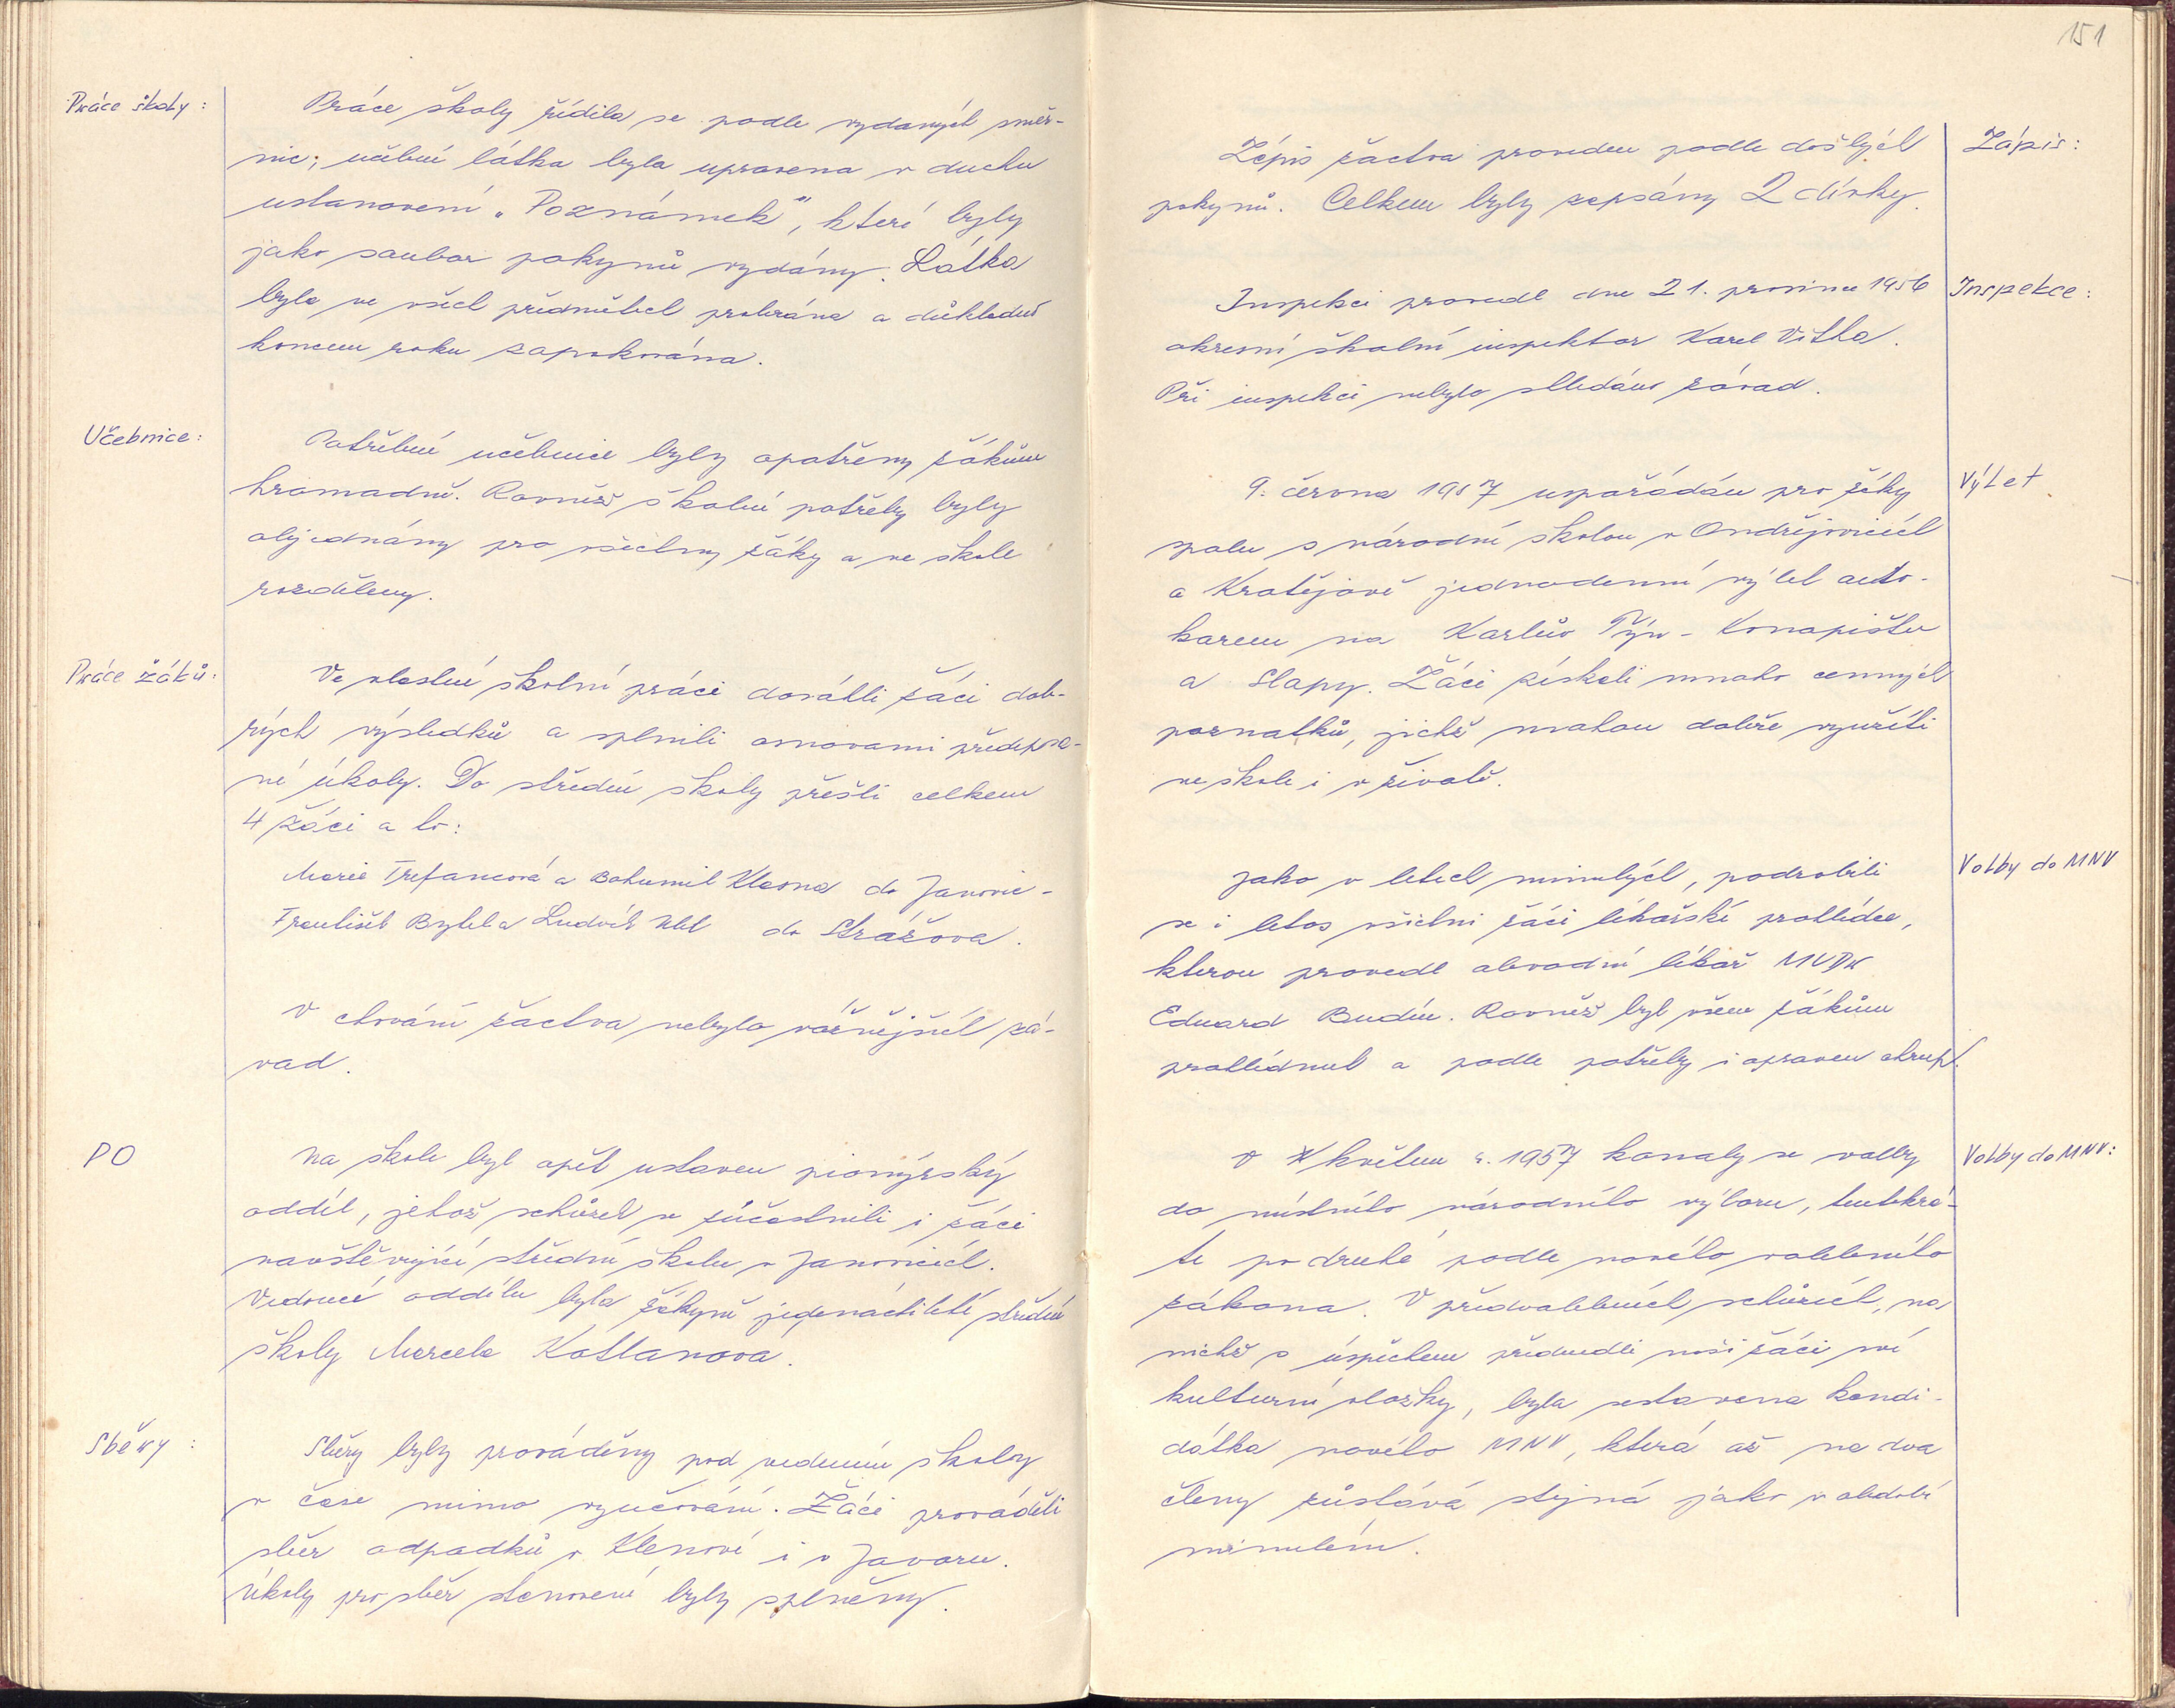 151
Práce školy:
Práce školy řídila se podle vydaných směr-
nic; učební látka byla upravena v duchu
ustanovení „Poznámek“, které byly
jako soubor pokynů vydány. Látka
byla ve všech předmětech probrána a důkladně
koncem roku zopakována.
Učebnice:
Potřebné učebnice byly opatřeny žákům
hromadně. Rovněž školní potřeby byly
objednány pro všechny žáky a ve škole
rozděleny.
Práce žáků:
Ve vlastní školní práci dosáhli žáci dob-
rých výsledků a splnili osnovami předepsa-
né úkoly. Do střední školy přešli celkem
4 žáci a to:
Marie Trefancová a Bohumil Klasna do Janovic -
František Bytel a Ludvík Uhl do Strážova.
V chování žactva nebylo vážnějších zá-
vad.
PO
Na škole byl opět ustaven pionýrský
oddíl, jehož schůzek se zúčastnili i žáci
navštěvující střední školu v Janovicích.
Vedoucí oddílu byla žákyně jedenáctileté střední
školy Marcela Kotlanova.
Sběry:
Sběry byly prováděny pod vedením školy
v čase mimo vyučování. Žáci prováděli
sběr odpadků v Klenové i v Javoru.
Úkoly pro sběr stanovené byly splněny.
Zápis:
Zápis žactva proveden podle došlých
pokynů. Celkem byly zapsány 2 dívky.
Inspekce:
Inspekci provedl dne 21. prosince 1956
okresní školní inspektor Karel Vitha.
Při inspekci nebylo shledáno závad.
Výlet
9. června 1957 uspořádán pro žáky
spolu s národní školou v Ondřejovicích
a Kratějově jednodenní výlet auto-
karem na Karlův Týn - Konopiště
a Slapy. Žáci získali mnoho cenných
poznatků, jichž mohou dobře využíti
ve škole i v životě.
Volby do MNV
Jako v letech minulých, podrobili
se i letos všichni žáci lékařské prohlídce,
kterou provedl obvodní lékař MUDr
Eduard Budín. Rovněž byl všem žákům
prohlédnut a podle potřeby i opraven chrup.
Volby do MNV:
V květnu r. 1957 konaly se volby
do místního národního výboru, tentokrá-
te po druhé podle nového volebního
zákona. V předvolebních schůzích, na
nichž s úspěchem předvedli naši žáci své
kulturní vložky, byla sestavena kandi-
dátka nového MNV, která až na dva
členy zůstává stejná jako v období
minulém.